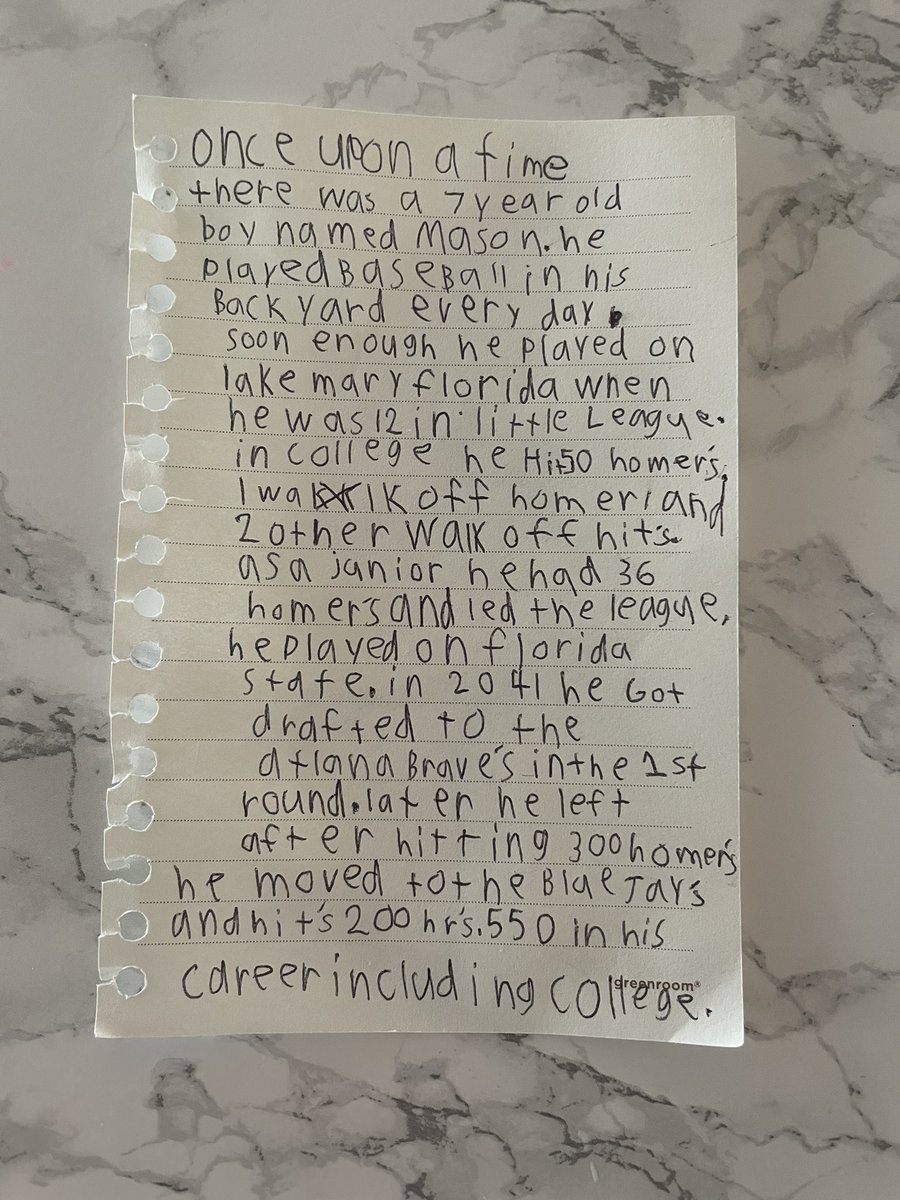 once upon a time
there was a 7 year old
boy named Mason. he
played BaseBall in his
Backyard every day.
soon enough he played on
lake mary florida when
he was 12 in little League.
in college he Hit 50 homer's,
1 walk off homer, and
2 other walk off hit's.
as a janior he had 36
homer's and led the league,
he played on florida
state. in 2041 he Got
drafted to the
atlana Brave's in the 1st
round. later he left
after hitting 300 homer's
he moved to the Blue Jay's
and hit's 200 hr's. 550 in his
career including college.
greenroom®